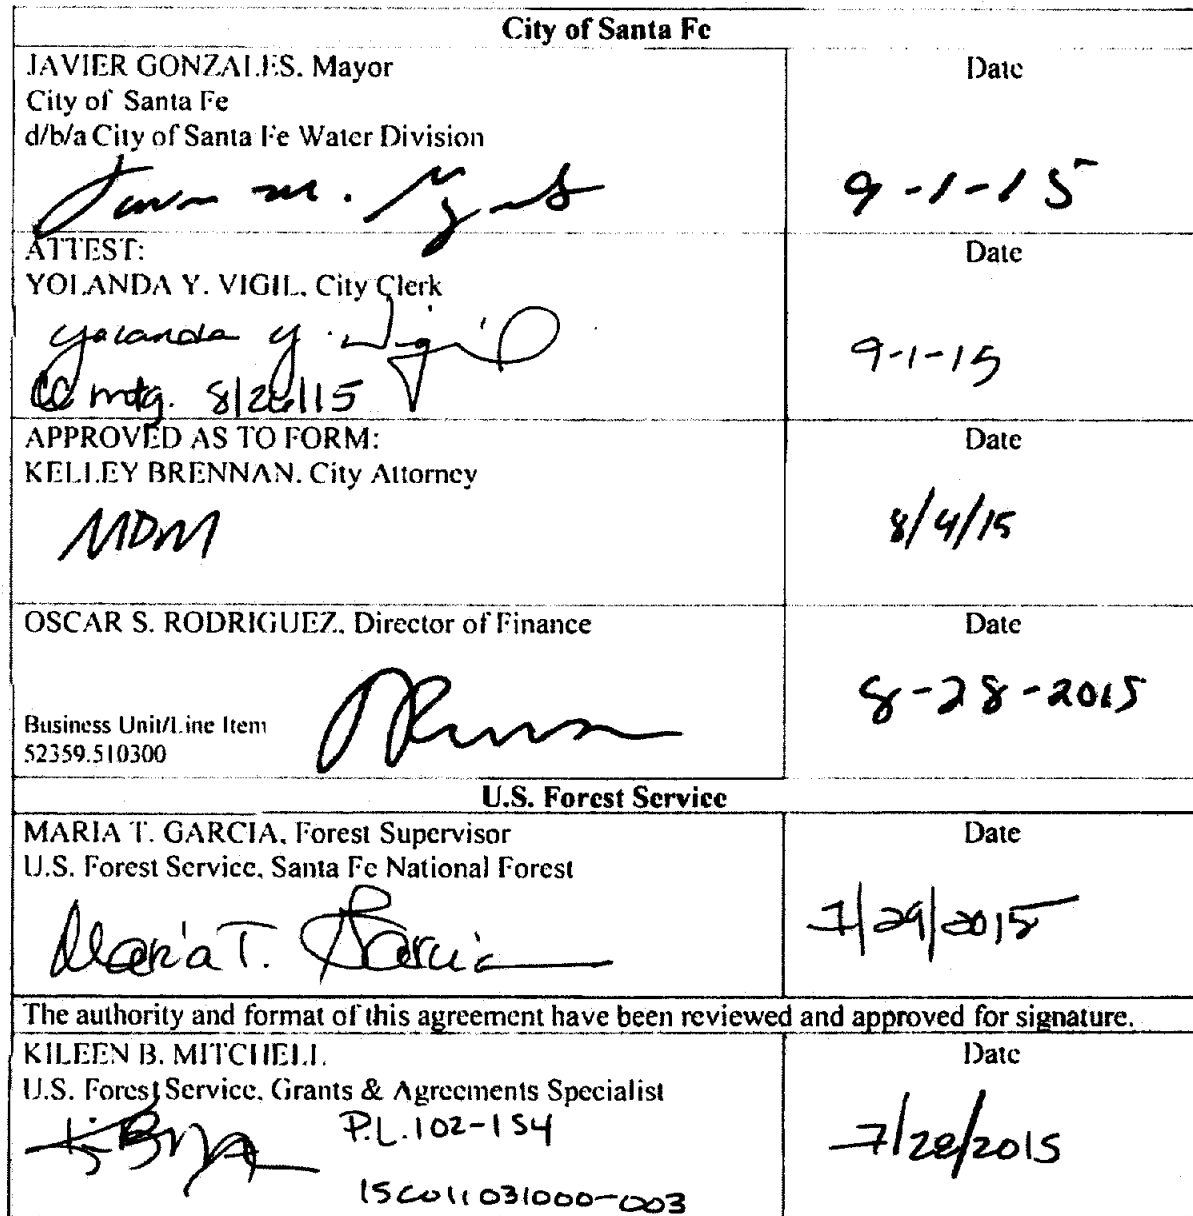 City of Santa Fe
JAVIER GONZALES, Mayor
Date
City of Santa Fe
d/b/a City of Santa Fe Water Division
9-1-15
ATTEST:
Date
YOLANDA Y. VIGIL, City Clerk
Yolanda Y. Vigil
9-1-15
CC mtg. 8/26/15
APPROVED AS TO FORM:
Date
KELLEY BRENNAN, City Attorney
MDM
8/4/15
OSCAR S. RODRIGUEZ, Director of Finance
Date
8-28-2015
Business Unit/Line Item
52359.510300
U.S. Forest Service
MARIA T. GARCIA, Forest Supervisor
Date
U.S. Forest Service, Santa Fe National Forest
Maria T. Garcia
7/29/2015
The authority and format of this agreement have been reviewed and approved for signature.
KILEEN B. MITCHELL
Date
U.S. Forest Service, Grants & Agreements Specialist
P.L. 102-154
7/28/2015
15CO11031000-003